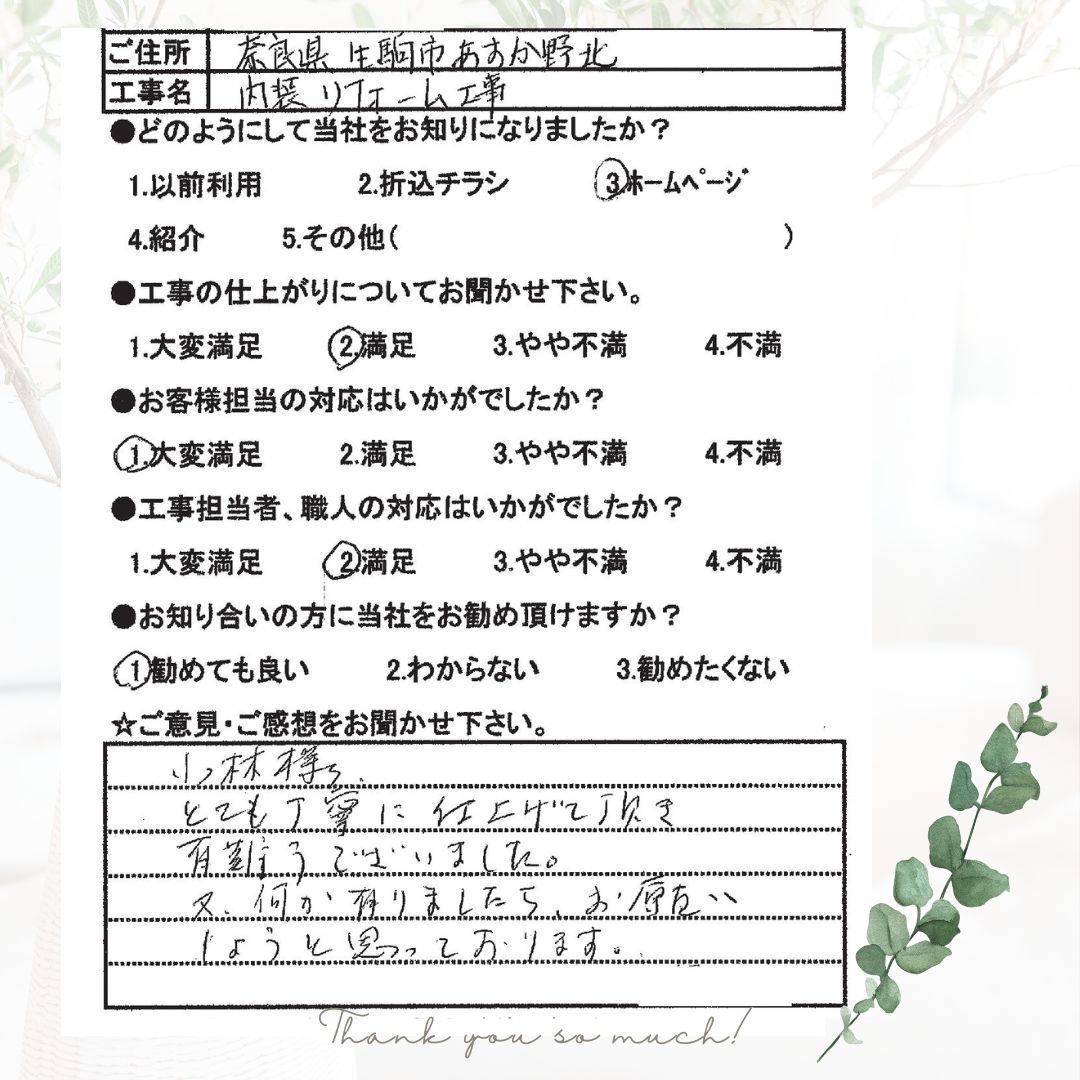 ご住所 奈良県生駒市あすか野北
工事名 内装リフォーム工事
●どのようにして当社をお知りになりましたか？
1.以前利用 2.折込チラシ 3.ホームページ
4.紹介 5.その他( )
●工事の仕上がりについてお聞かせ下さい。
1.大変満足 2.満足 3.やや不満 4.不満
●お客様担当の対応はいかがでしたか？
1.大変満足 2.満足 3.やや不満 4.不満
●工事担当者、職人の対応はいかがでしたか？
1.大変満足 2.満足 3.やや不満 4.不満
●お知り合いの方に当社をお勧め頂けますか？
1.勧めても良い 2.わからない 3.勧めたくない
☆ご意見・ご感想をお聞かせ下さい。
小林様
とても丁寧に仕上げて頂き
有難うございました。
又、何か有りましたら、お願い
しようと思っております。
Thank you so much!